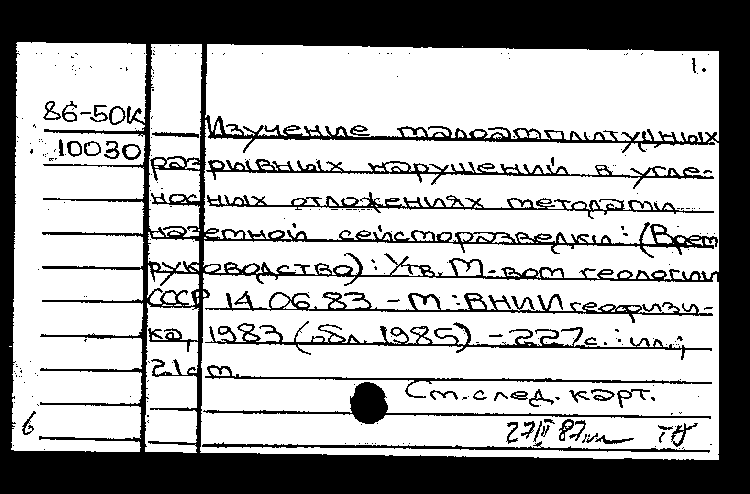 1.
86-50К
Изучение малоамплитудных
10030
разрывных нарушений в угле-
носных отложениях методами
наземной сейсморазведки: (Врем.
руководство): Утв. М-вом геологии
СССР 14.06.83. - М.: ВНИИгеофизи-
ка, 1983 (обл. 1985). - 227 с.: ил.;
21 см.
См. след. карт.
6
87